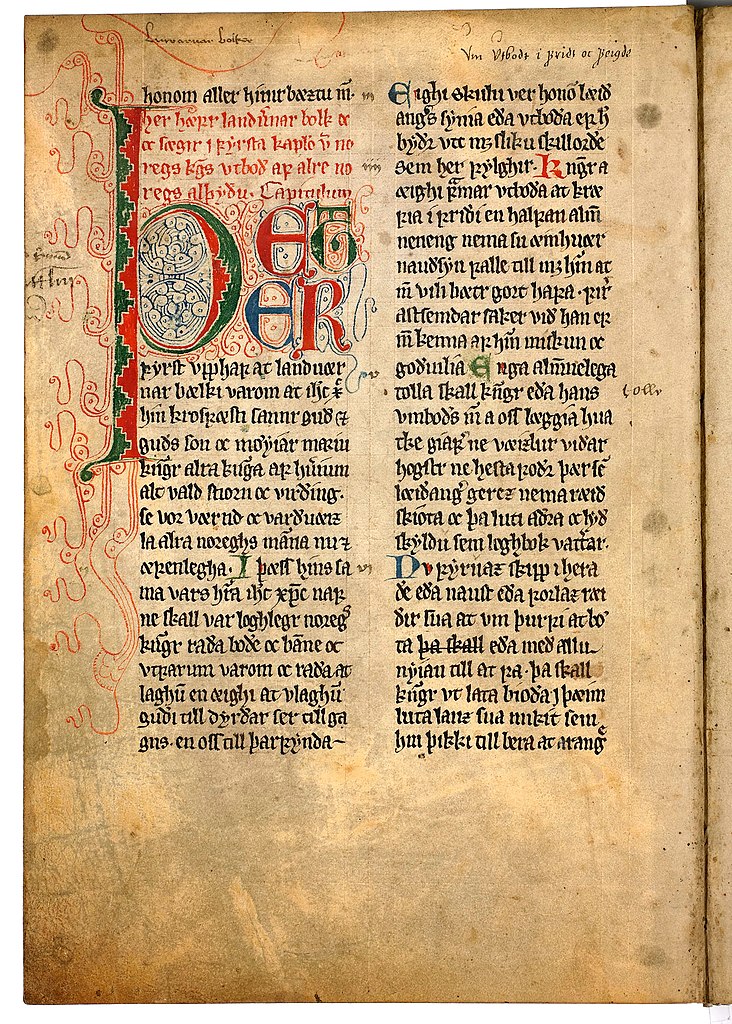 Lanvarnar bolker
Vm Vtbodt i fridt oc
honom aller hinir bæztu m̄.
her hærr landuarnar bolk oc
oc sægir i fyrsta kaplo v̄ no
regs kgs vtboð af alre no
regs alþyðu. Capitulum
ÞET
ER
fyrst vpphaf at landuær
nar bælki varom at ihc̄ x̄
hin krosfæsti sannr guð et
guðs son oc møyiar mariu
kūgr alra kūga af huerium
alt vald stiorn oc virðing.
se vor værnd oc varðuæiz
la alra noreghs māna nu et
æfenlegha. I þæss hins sa
ma vars hr̄a ihc̄ xp̄c naf
ne skall var loghlegr noregs
kūgr rada bode oc bāne oc
vtfarum varom oc rada at
laghū en æighi at vlaghū
guði till dyrðar ser till ga
gns. en oss till þarfynda
Eighi skulu ver honō læid
angs synia eda vtboda ef h̄
bydr vte mz sliku skillorde
sem her fylghir. Kūgr a
æighi fr̄mar vtboda at kræ
fia i fridi en halfan alm̄
neneng nema su æmhuær
naudsyn falle till mz hin at
m̄ vili bætr gort hafa. firir
astsemdar saker vid han er
m̄ kenna af hin miskun oc
godiulia Enga almūelega
tolla skall kūgr eda hans tolle
vmbods m̄ a oss læggia hua
tke giaf ne væizlur vidar
hogstr ne hesta fodr þær sē
læidangr gerez nema ræid
skiota oc þa luti adra oc lyd
skyldu sem loghbok vattar.
Nv fyrnaz skipp i hera
de eda naust eda forlaz ræi
dir sua at vm þurfi at bo
ta þa skall eda med allu
nyian till at fa. þa skall
kūgr vt lata bioda i þæim
luta lanz sua mikit sem
hin þikki till bera at arangr